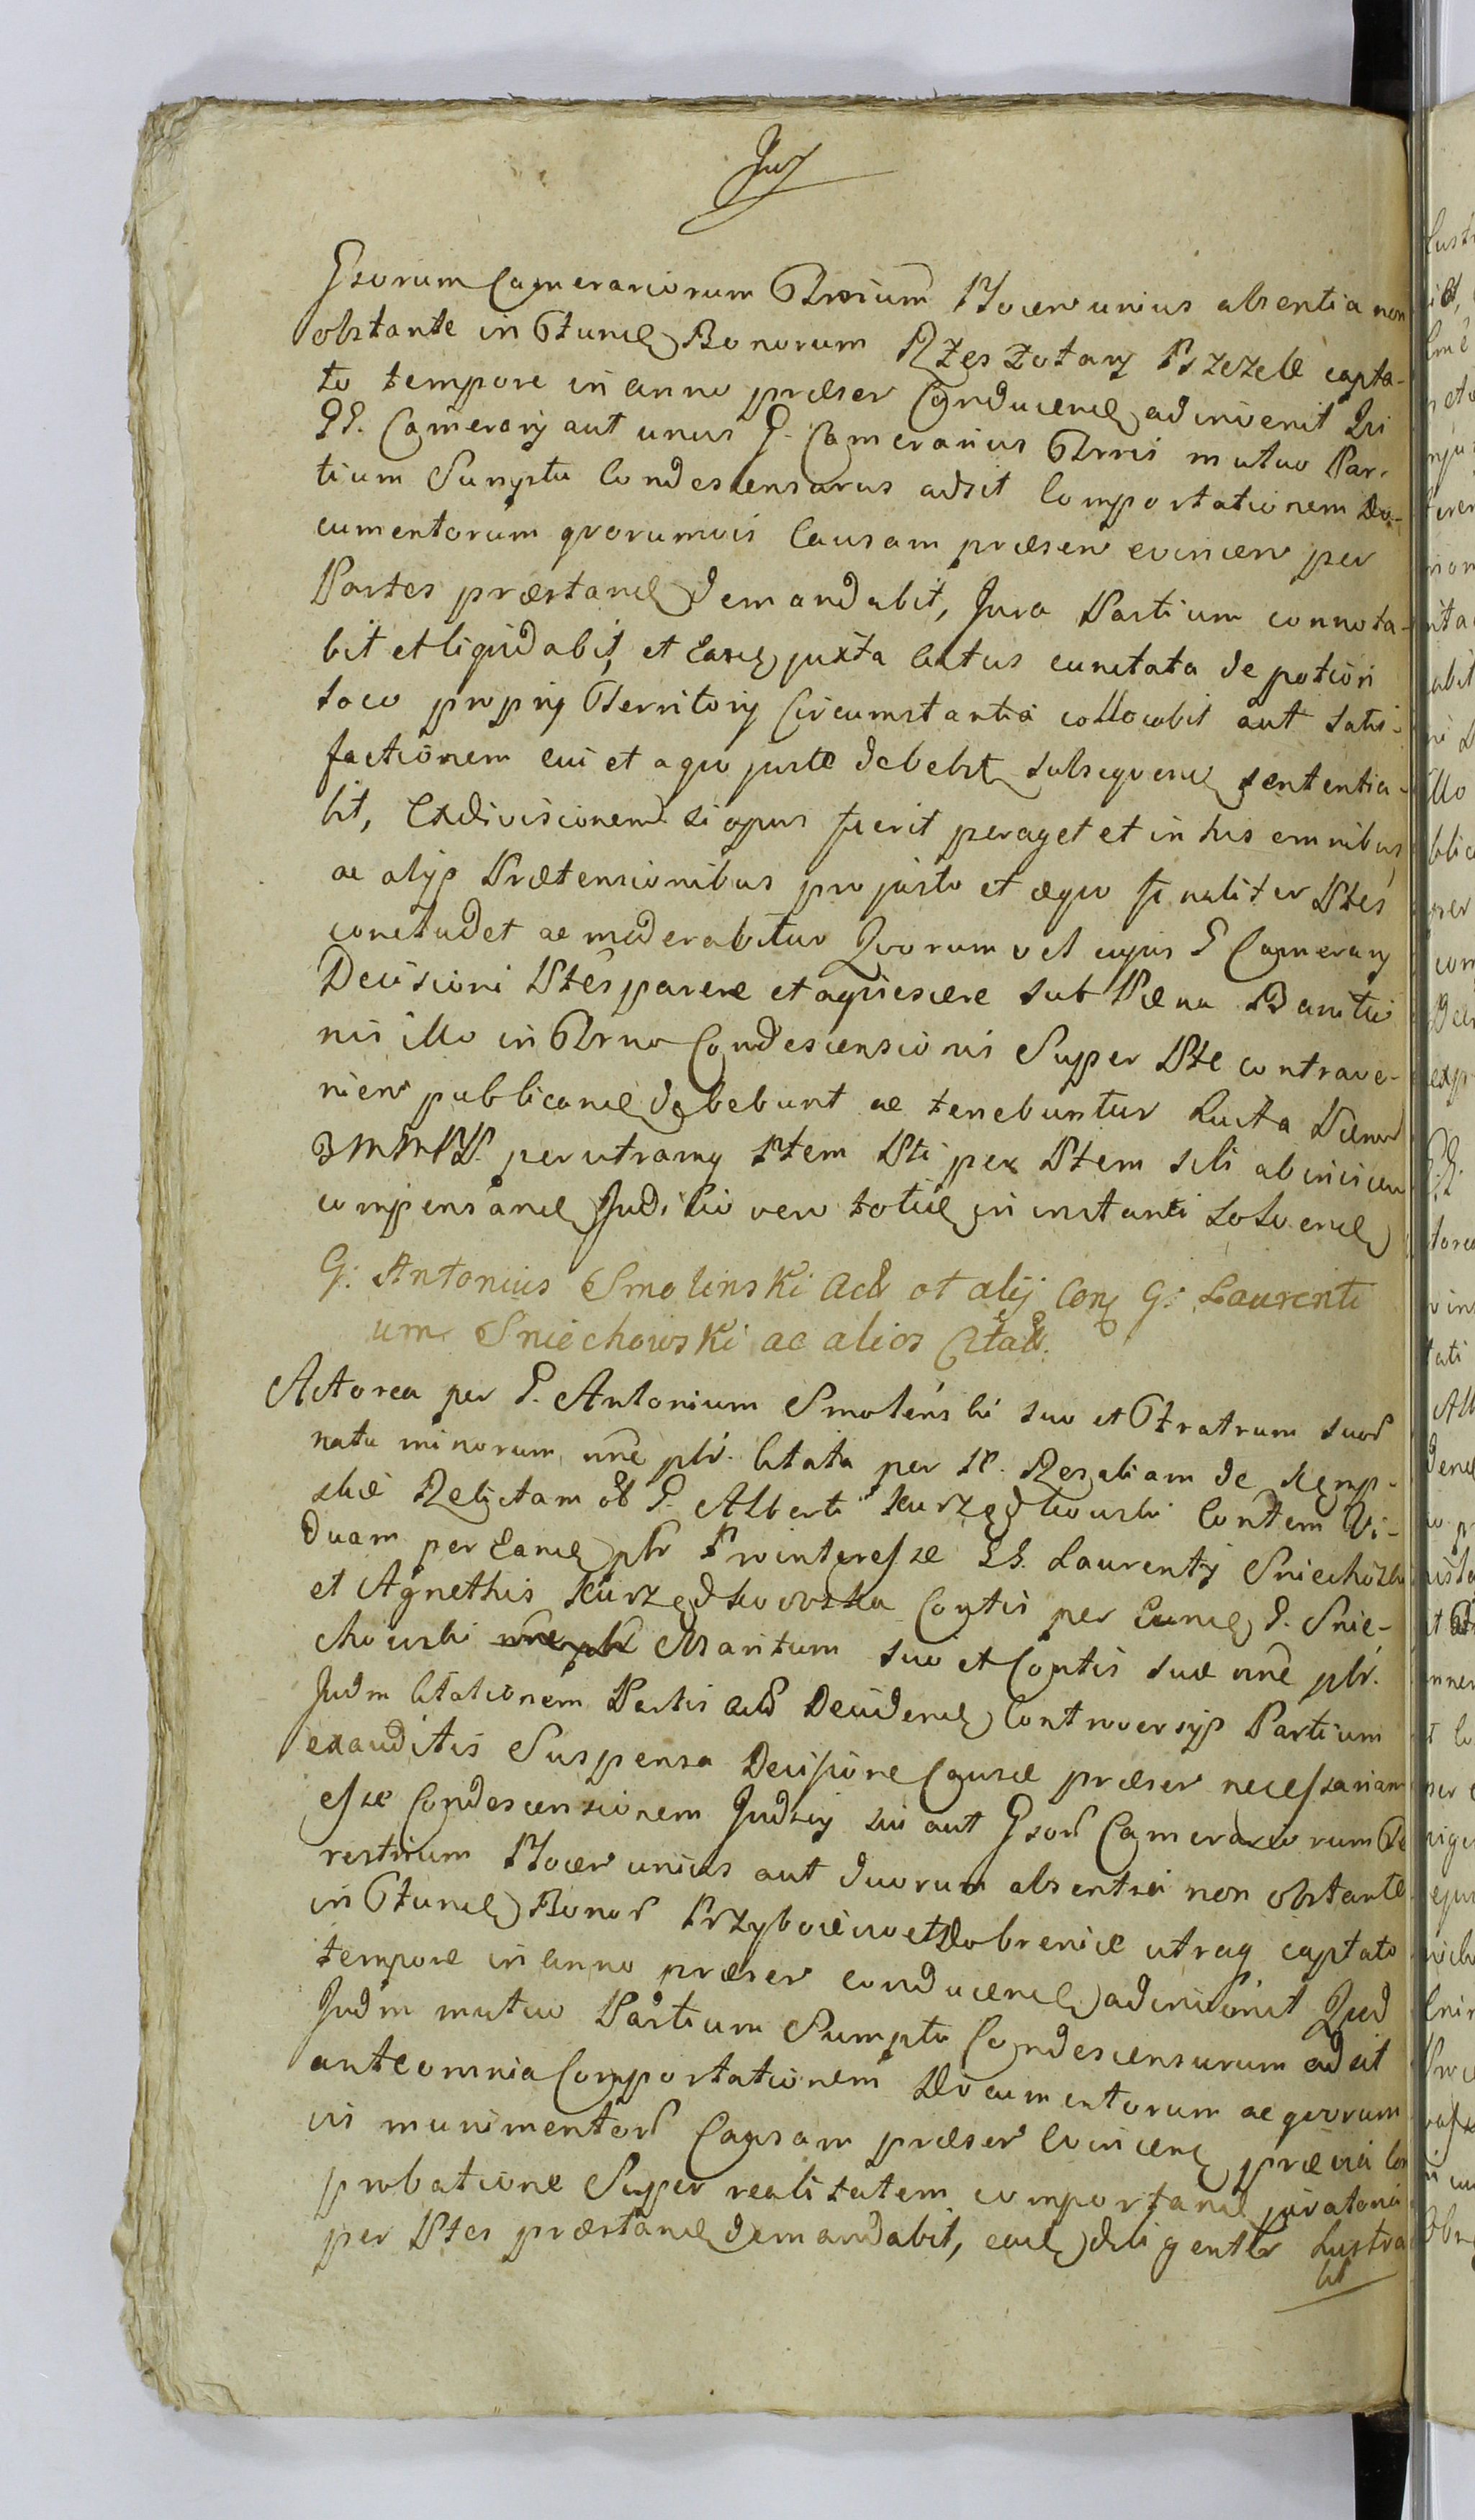 Jud
Gsorum Camerariorum Trrium Nocen unius absentia non
obstante in Fundū Bonorum Rzeszotary Pszczele capta-
to tempore in anno præsen Conducenđ adinvenit Qui
GG. Camerarij aut unus G. Camerarius Trris mutuo Par-
tium Sumptu Condescensurus adsit Comportationem Do-
cumentorum quorumvis Causam præsen evincen per
Partes præstanđ demandabit, Jura Partium connota-
bit et liquidabit, et Easđ juxta Actus cunctata de potiori
loco proprij Territorij Circumstantiâ collocabit aut satis-
factionem cui et a quo juste debebit subsequenđ sententia-
bit, Exdivisionem si opus fuerit peraget et in his omnibus
ac alijs Prætensionibus pro justo et æquo finaliter Ptes
concludet ac moderabitur Quorum vel cujus G Camerarij
Decisioni Ptes parere et acquiescere sub Pæna Banitio
nis illo in Trno Condescensionis Super Pte contrave-
nien publicanđ debebunt ac tenebuntur Lucta Pænaū
3MMPP. per utramq Ptem Pti per Ptem sibi ab invicem
compensanđ Judicio vero totiđ in instanti solvenđ
G: Antonius Smolinski Act et alij Conŧ G: Laurenti
um Sniechowski ac alios Cittat.
Actorea per G. Antonium Smolenski suo et Fratrum suor
natu minorum nne pbr. Citata per M. Rozaliam de Kemp-
skie Relictam ol G. Alberti Kurzędkowski Contem Vi-
duam per Eanđ pbr Pro interesse GG. Laurentij Sniechowski
et Agnethis Kurzędkowska Contis per Eunđ G. Snie-
chowski Maritum suo et Contis suæ nne pbr.
Judm Citationem Partis Act Decidenđ Controversijs Partium
exauditis Suspensa Decisione Causæ præsen necessariam
esse Condescensionem Judicij sui aut Gsor Camerariorum Te
restrium Nocen unius aut duorum absentia non obstante
in Fundū Bonor Przyboiewo et Dobrenice utraq captato
tempore in anno præsen conducenđ adinvenit Qud
Judm mutuo Partium Sumptu Condescensurum adsit
ante omnia Comportationem Documentorum ac quorum
vis munimentor Causam præsen evincenđ prævia Com
probatione Super realitatem comportanđ juratoria
per Ptes præstanđ demandabit, eađ diligenter Lustra
bit